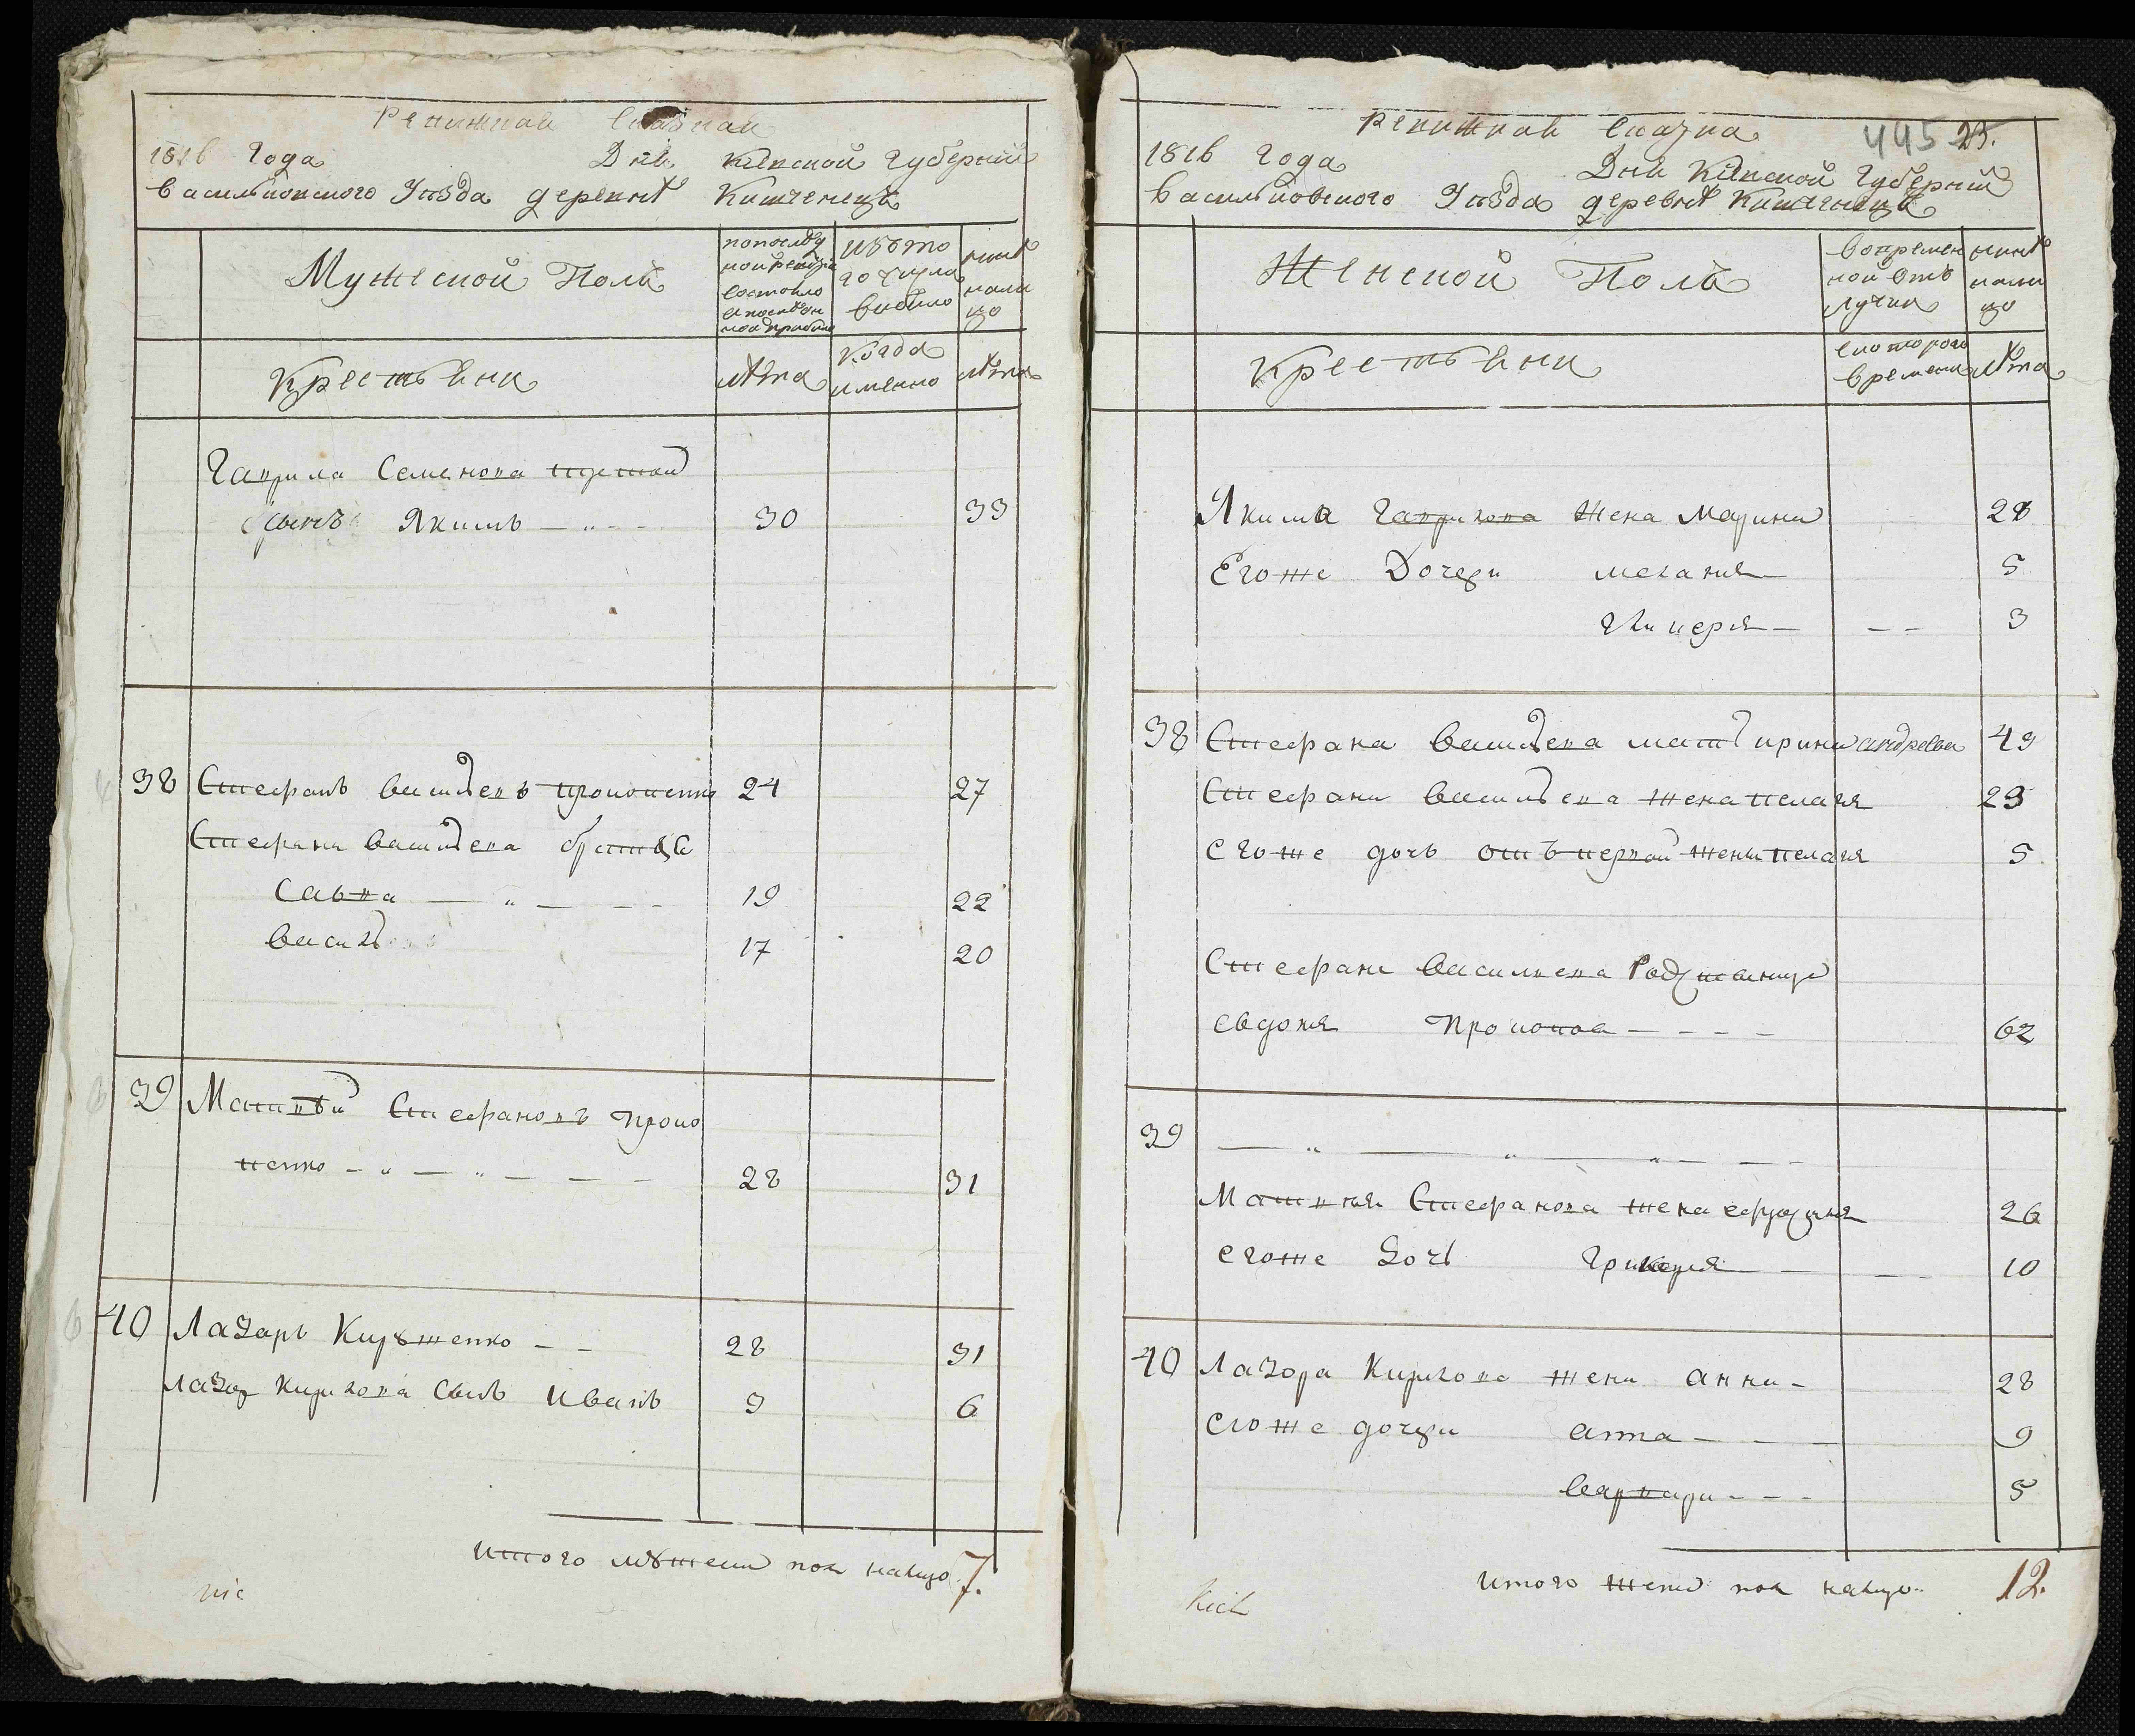 Ревижная Сказкаѣ
1816 Года Дня Кіевской Губернии
васильковского Уѣзда деревнѣ Кищенецъ
Мужеской Полъ
по последней ревизіи состояло и после оной прибыло
изъ того числа выбыло
нынѣ налицо
Крестьяни
лѣта
когда именно
лѣта
Гаврила Семенова
сынъ Якимъ
30
33
38 Стефанъ васильевъ прокопенко 24 27
Стефана васильева братья
Савка 19 22
василь 17 20
39 Матвѣй Стефановъ Проко
пенко 28 31
40 Лазарь Кирыенко 28 31
лазар Кирилова сынъ Иванъ 3 6
итого мужеска пол налицо 7.
Ревижная Сказка
445 25.
1816 Года Дня Кіевской Губерній
васильковского Уѣзда деревнѣ
Женской Полъ
во временной отлучки
нынѣ налицо
Крестьяни
с которого времени
лѣта
Якима Гаврилова Жена Марина 28
Егоже Дочери мелания 5
Гликерия 3
38 Стефана васильева мать ирина андреева 49
Стефана васильева жена пелагия 23
егоже дочь отъ первой жени пелагия 5
Стефана Василиева
евдокия Прокопова 62
39
Матвия Стефанова жена ефросиния 26
егоже Дочь Гликерия 10
40 Лазора Кирилова жена анна 28
егоже дочери анна 9
варвара 5
итого женск пол налицо 12.